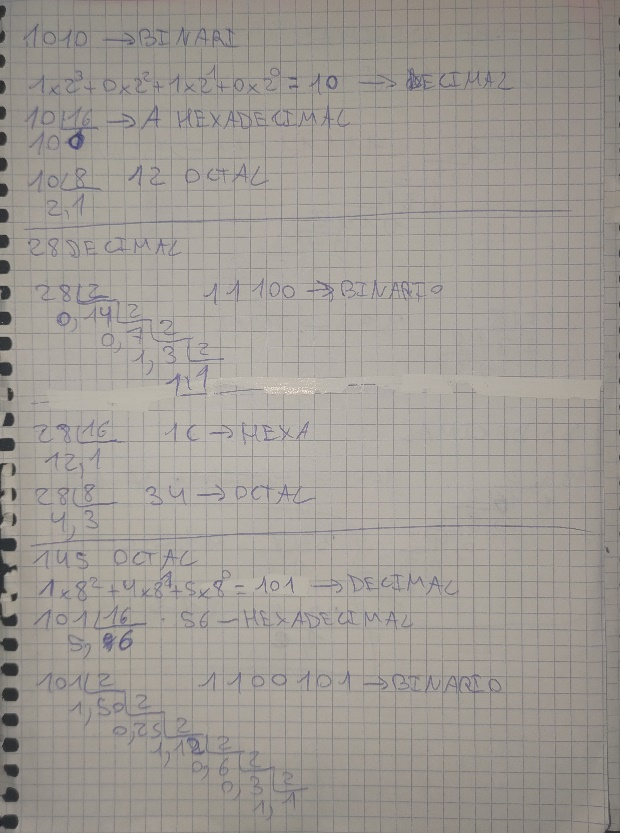 1010 → BINARI
1x2³+0x2²+1x2¹+0x2⁰ = 10 → DECIMAL
10 16 → A HEXADECIMAL
10 0
10 8 12 OCTAL
2,1
28 DECIMAL
28 2 11100 → BINARIO
0, 14 2
0, 7 2
1, 3 2
1, 1
28 16 1C → HEXA
12,1
28 8 34 → OCTAL
4, 3
145 OCTAL
1x8²+4x8¹+5x8⁰ = 101 → DECIMAL
101 16 . 56 - HEXADECIMAL
5, 6
101 2 1100101 → BINARIO
1, 50 2
0, 25 2
1, 12 2
0, 6 2
0, 3 2
1, 1